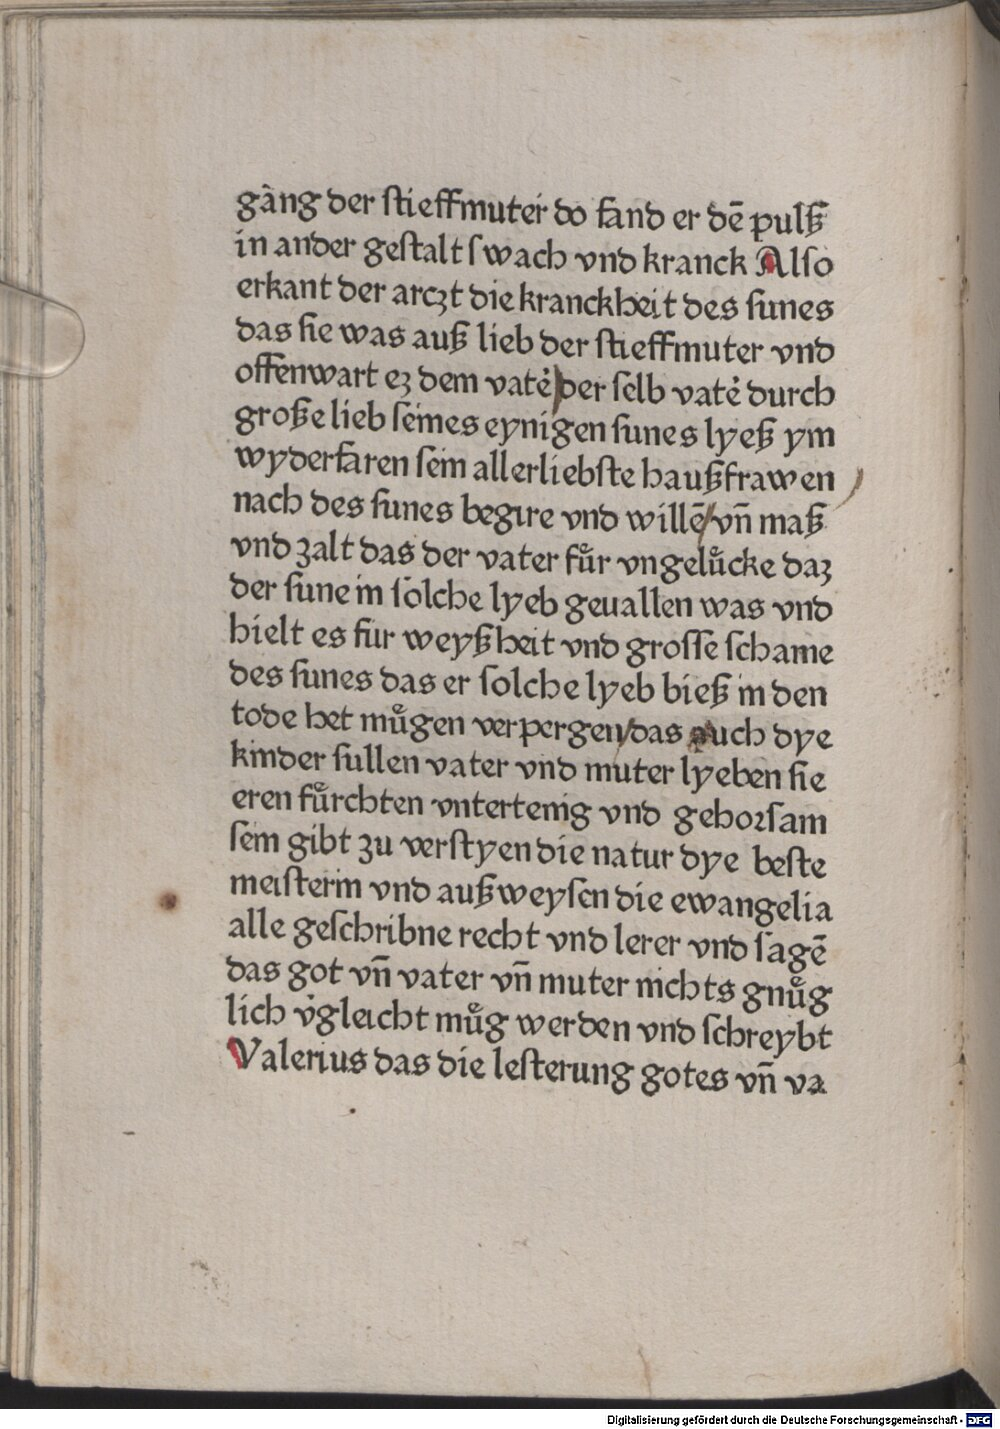 gāng der ſtieffmuter do fand er dē pulß
in ander geſtalt ſwach vnd kranck Alſo
erkant der arczt die kranckheit des ſunes
das ſie was auß lieb der ſtieffmuter vnd
offenwart ez dem vatė der ſelb vatė durch
große lieb ſeines eynigen ſunes lyeß ym
wyderfaren ſein allerliebſte haußfrawen
nach des ſunes begire vnd willē/ vn̄ maß
vnd zalt das der vater fuͤr vngeluͤcke daz
der ſune in ſolche lyeb geuallen was vnd
hielt es fur weyßheit vnd groſſe ſchame
des ſunes das er ſolche lyeb bieß in den
tode het muͤgen verpergen/ das auch dye
kinder ſullen vater vnd muter lyeben ſie
eren fuͤrchten vntertenig vnd gehoꝛſam
ſein gibt zu verſtyen die natur dye beſte
meiſterin vnd außweyſen die ewangelia
alle geſchribne recht vnd lerer vnd ſagē
das got vn̄ vater vn̄ muter nichts gnuͤg
lich v̇gleicht muͤg werden vnd ſchreybt
Valerius das die leſterung gotes vn̄ va
Digitalisierung gefördert durch die Deutsche Forschungsgemeinschaft - DFG